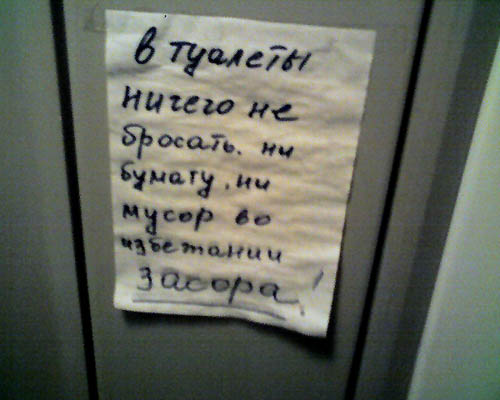 в туалеты
ничего не
бросать. ни
бумагу, ни
мусор во
избетании
засора!